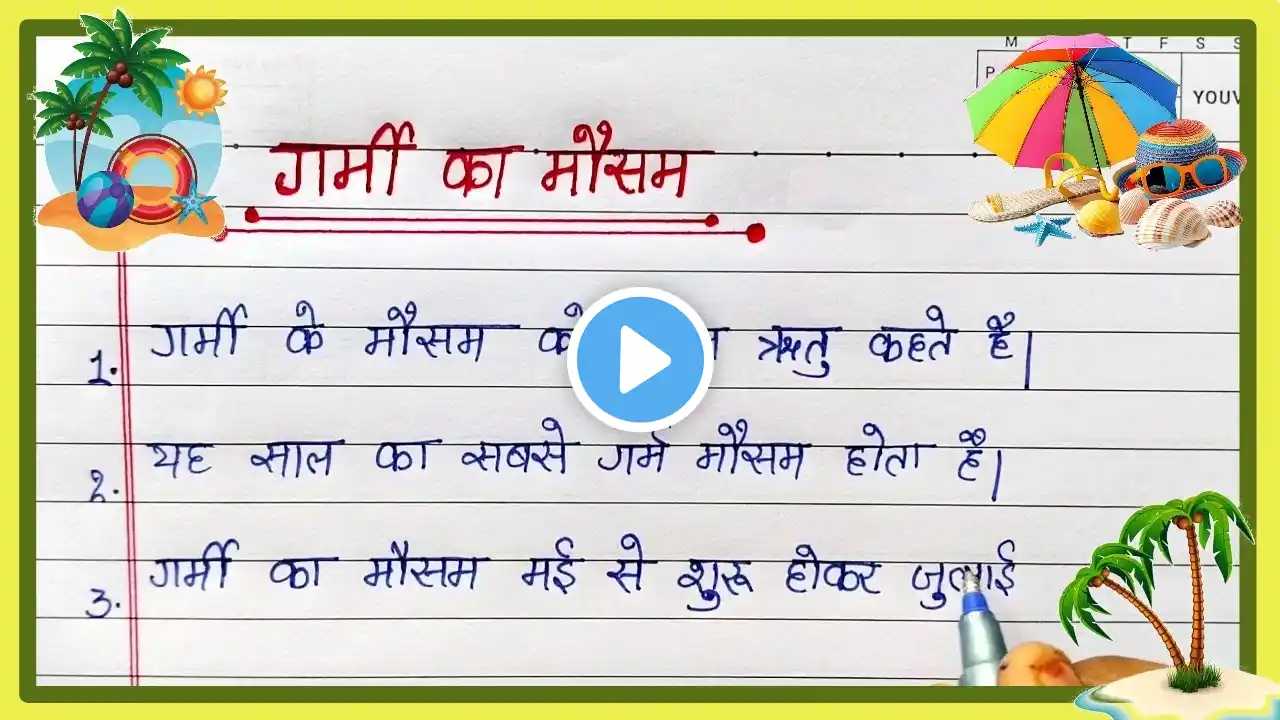 M T F S S
P
YOUV
गर्मी का मौसम
1. गर्मी के मौसम को ऋतु कहते है।
2. यह साल का सबसे गर्म मौसम होता है।
3. गर्मी का मौसम मई से शुरू होकर जुलाई